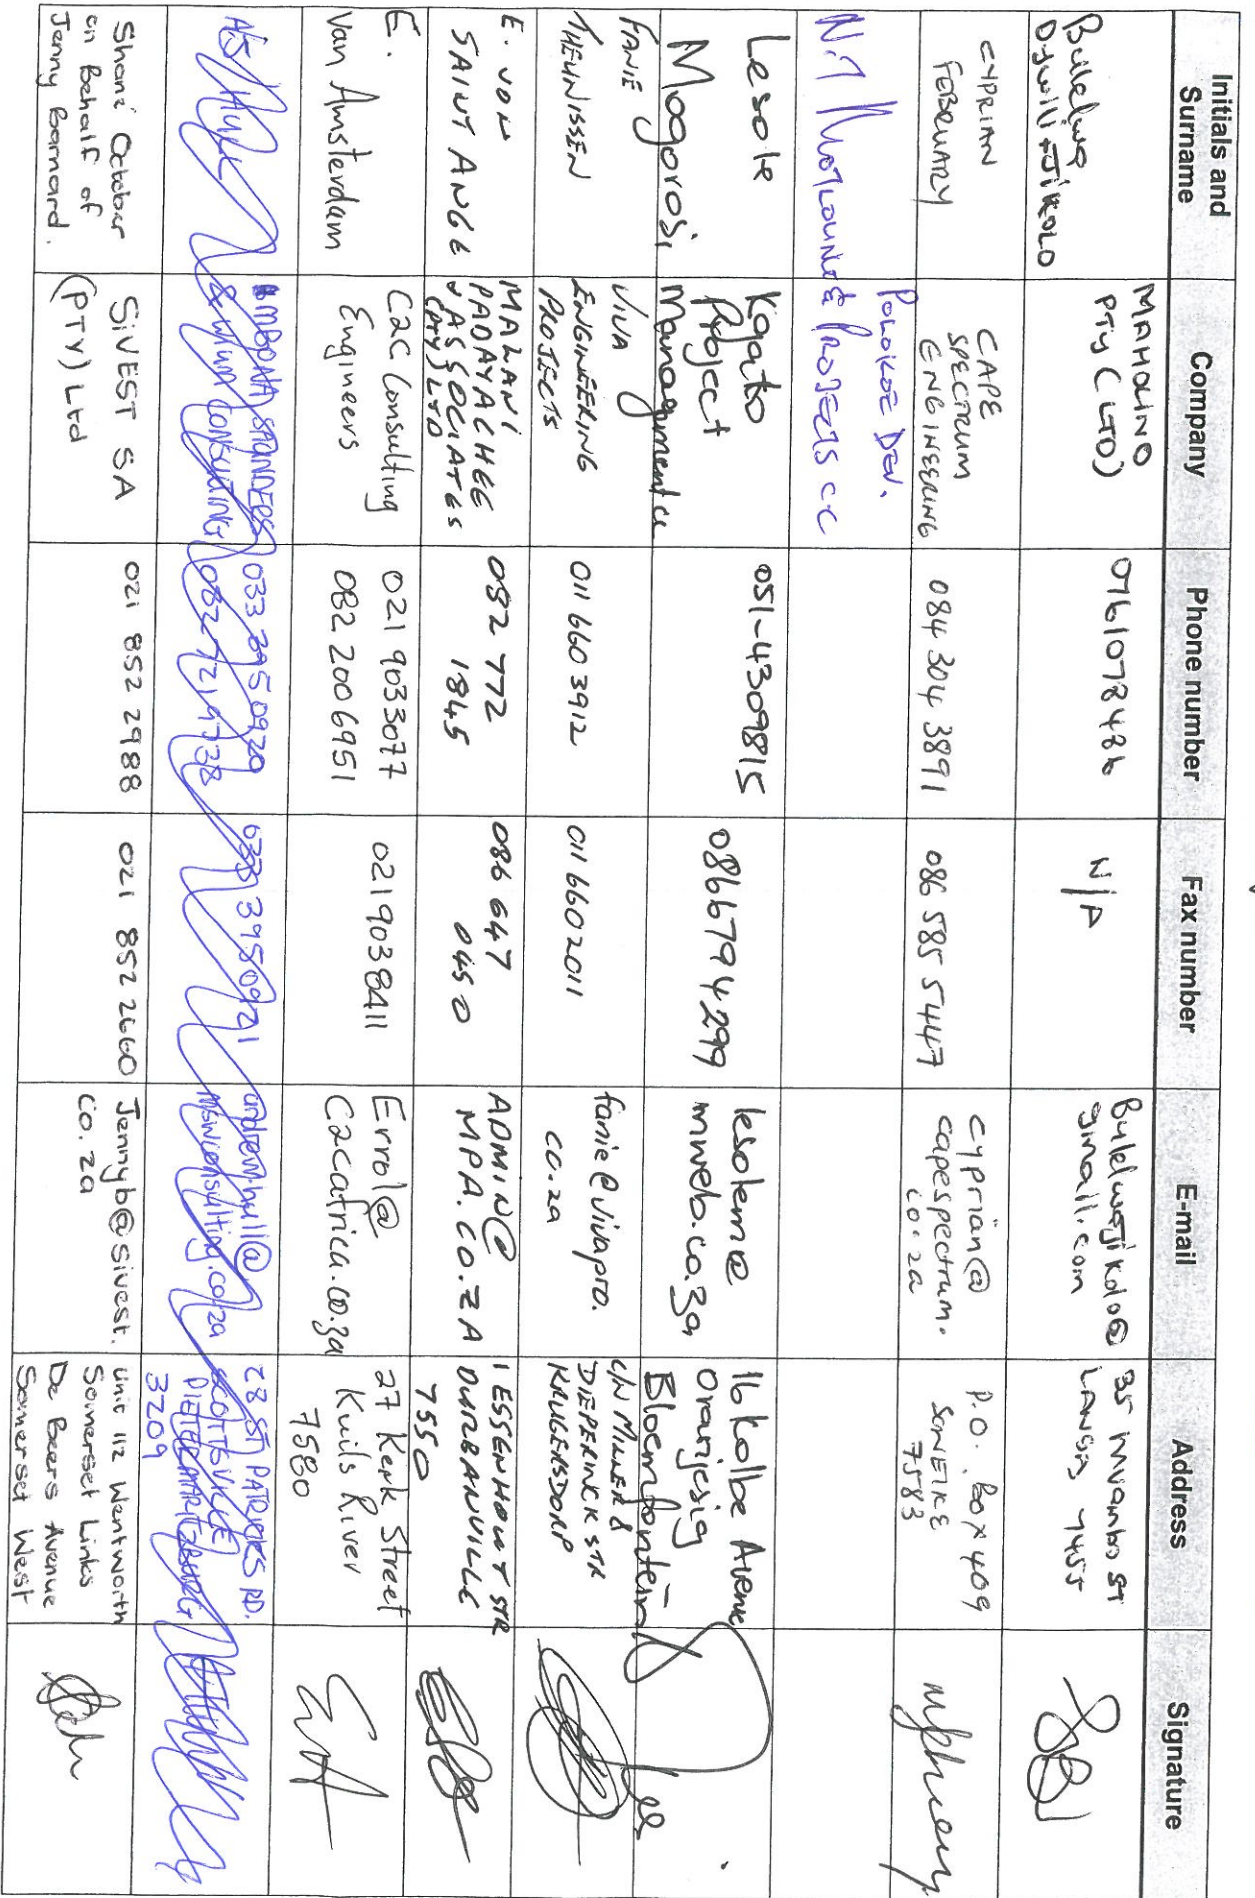 Initials and Surname
Company
Phone number
Fax number
E-mail
Address
Signature
Bulelwa
MAHLUKO
PTY (LTD)
0761078486
N/A
Bulelwajikolo@
gmail.com
35
ST
LANGA 7455
CYPRIAN
FEBRUARY
CAPE
SPECTRUM
ENGINEERING
084 304 3891
086 585 5447
cyprian@
capespectrum.
co.za
P.O. Box 409
SONEIKE
7583
POLOKOE DEV.
& PROJECTS CC
Lesole
Mogorosi
Kgato
Project
Management cc
051-4309815
0866794299
lesolem@
mweb.co.za
16 Kolbe Avenue
Oranjesig
Bloemfontein
FANIE
THEUNISSEN
VIVA
ENGINEERING
PROJECTS
011 660 3912
011 6602011
fanie@vivapro.
co.za
C/N MILNER &
DIEPERINCK STR
KRUGERSDORP
E. VON
SAINT ANGE
MALANI
PADAYACHEE
& ASSOCIATES
(PTY) LTD
082 772
1845
086 647
0450
ADMIN@
MPA.CO.ZA
1 ESSENHOUT STR
DURBANVILLE
7550
E.
Van Amsterdam
C2C Consulting
Engineers
021 9033077
082 2006951
021 9038411
Errol@
C2Cafrica.co.za
27 Kerk Street
Kuils River
7580
CONSULTING
033 3950920
033 3950921
andrewhull@
mswconsulting.co.za
28 ST PATRICKS RD.
SCOTTSVILLE
PIETERMARITZBURG
3209
Shané October
on Behalf of
Jenny Barnard.
SiVEST SA
(PTY) Ltd
021 852 2988
021 852 2660
Jennyb@sivest.
co.za
Unit 112 Wentworth
Somerset Links
De Beers Avenue
Somerset West